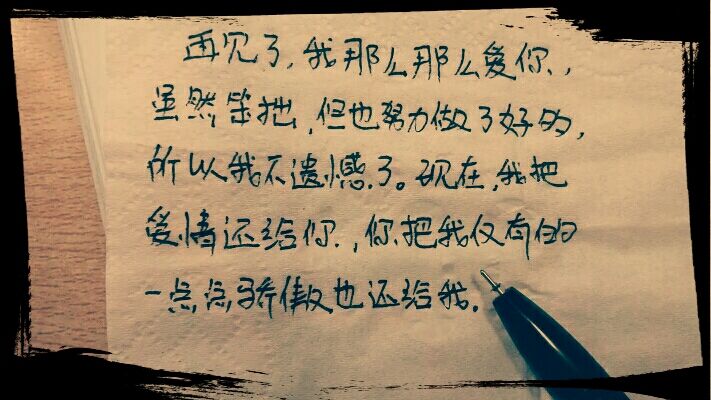 再见了,我那么那么爱你,
虽然笨拙,但也努力做了好的,
所以我不遗憾了。现在,我把
爱情还给你,你把我仅有的
一点点骄傲也还给我.